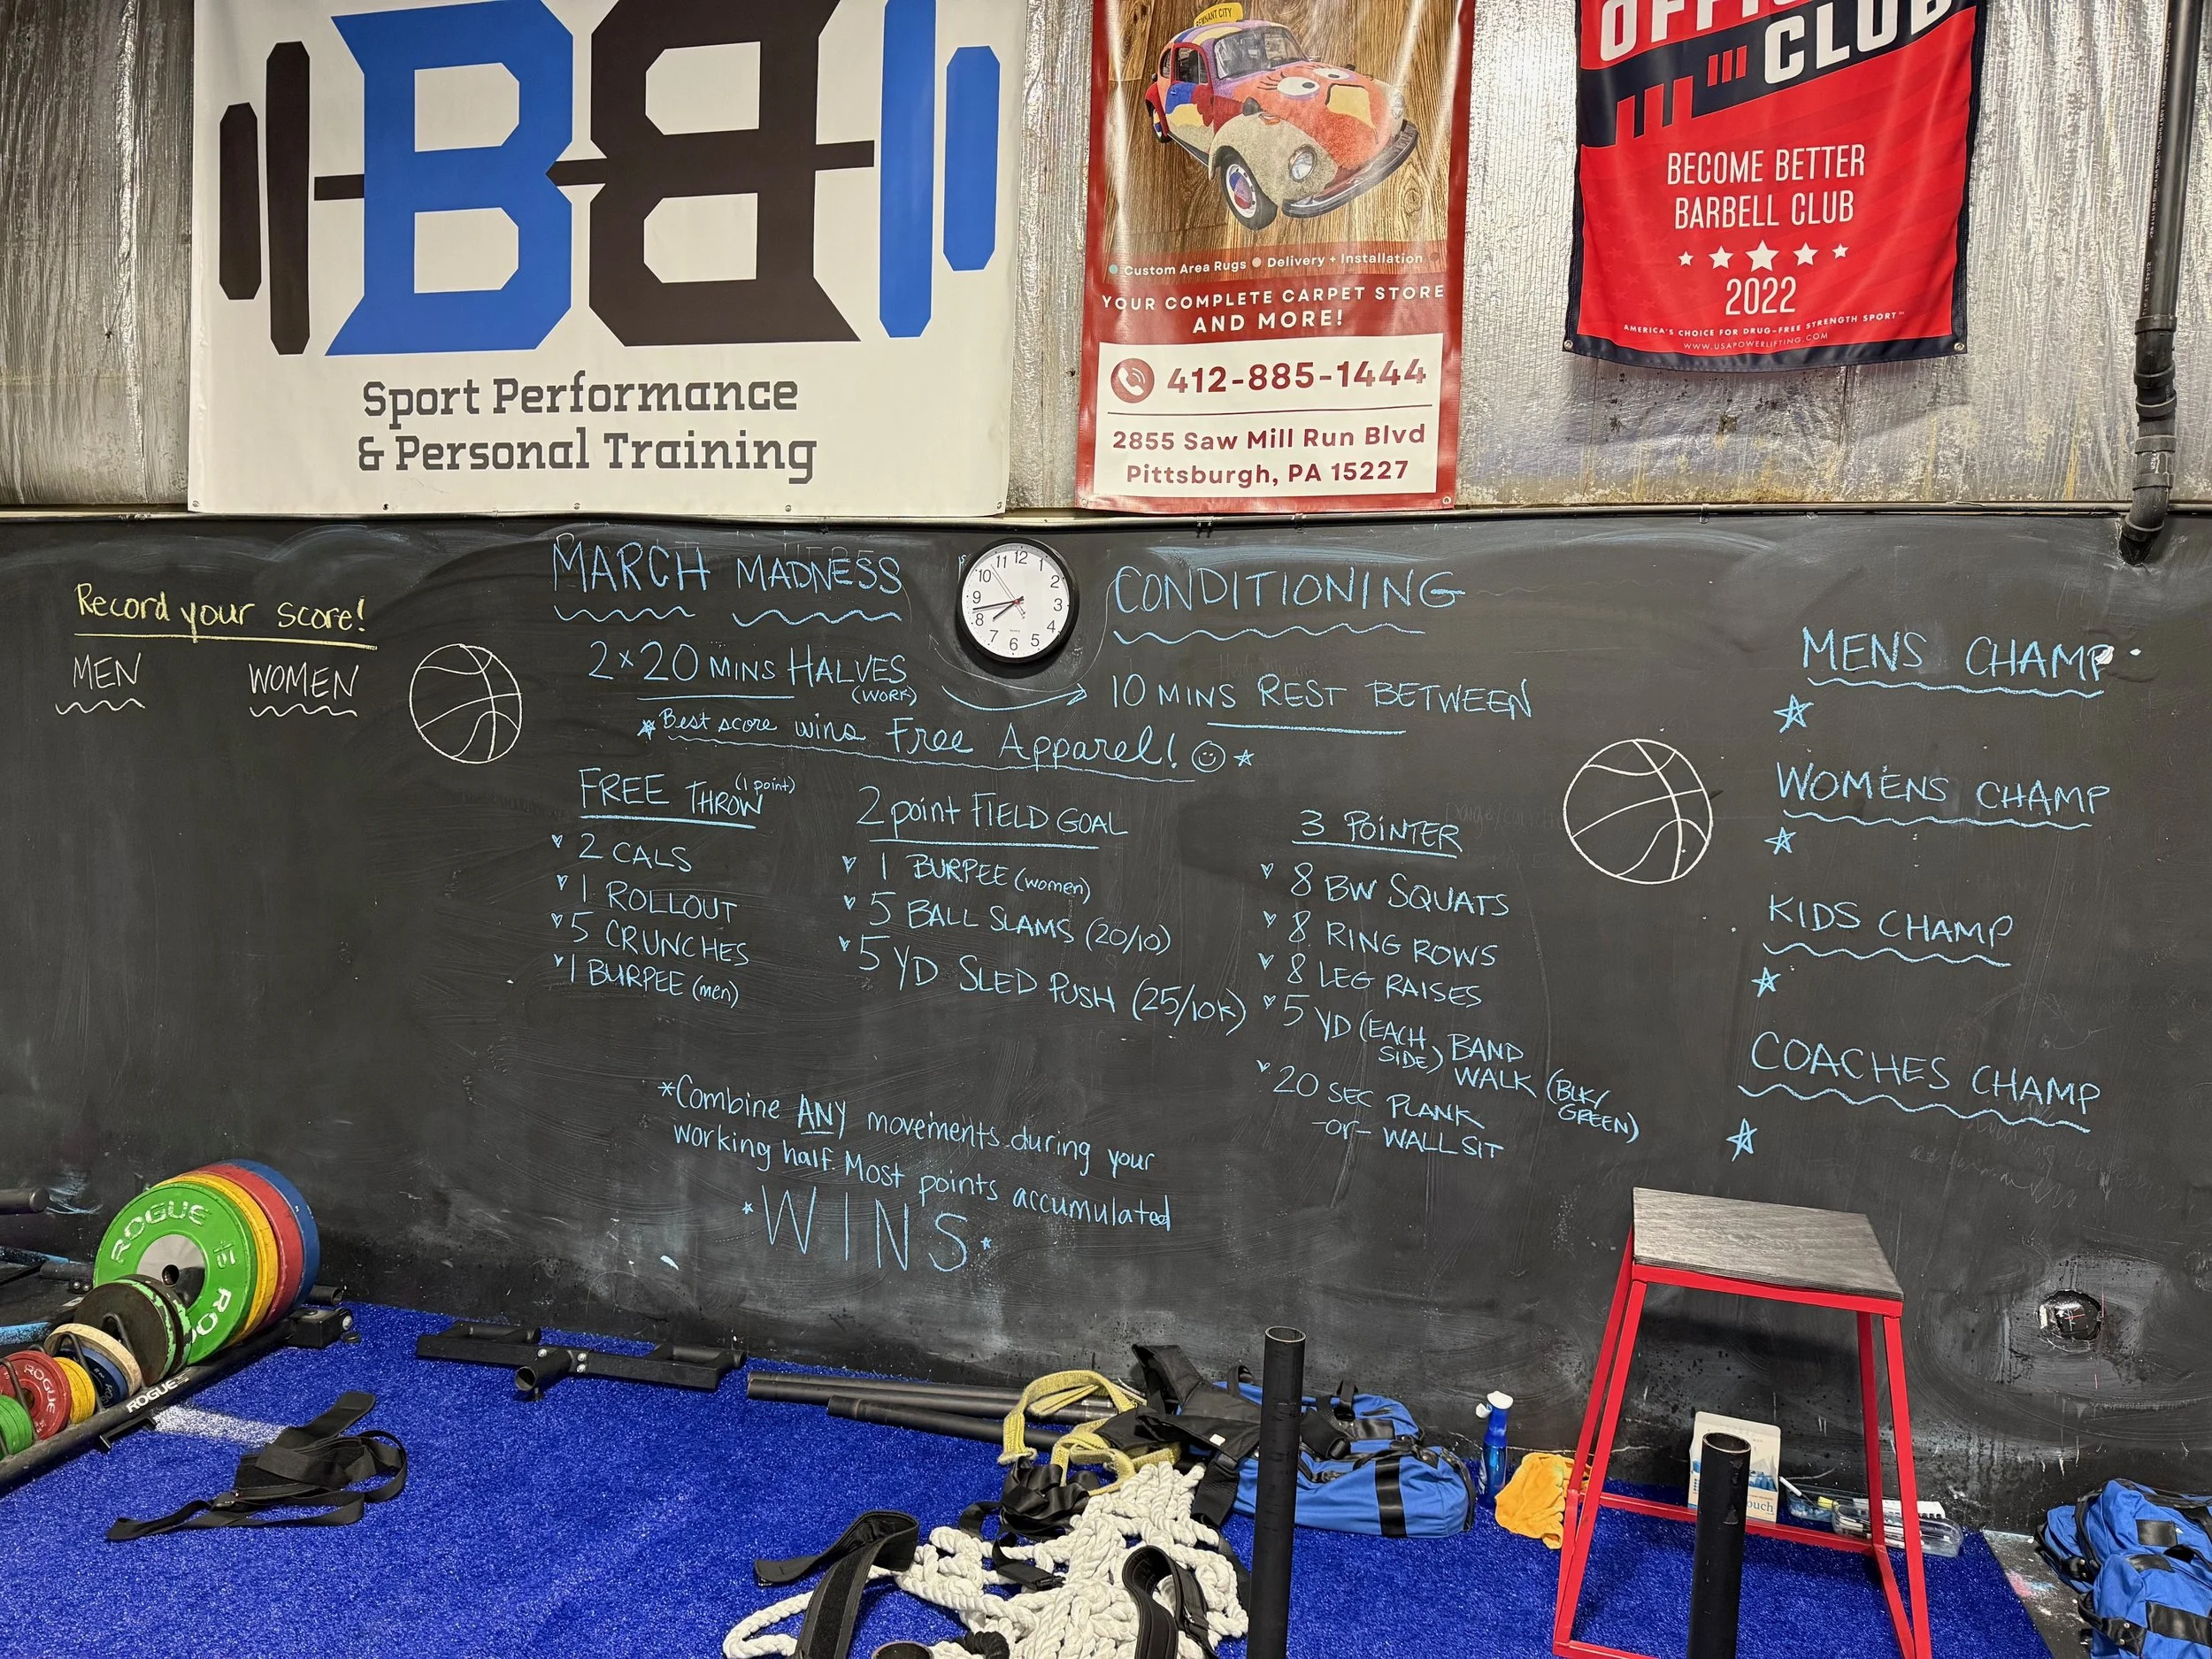 BB
Sport Performance
& Personal Training
REMNANT CITY
Custom Area Rugs Delivery + Installation
YOUR COMPLETE CARPET STORE
AND MORE!
412-885-1444
2855 Saw Mill Run Blvd
Pittsburgh, PA 15227
CLUB
BECOME BETTER
BARBELL CLUB
2022
AMERICA'S CHOICE FOR DRUG-FREE STRENGTH SPORT™
WWW.USAPOWERLIFTING.COM
Record your score!
MEN WOMEN
MARCH MADNESS CONDITIONING
12 1 2 3 4 5 6 7 8 9 10 11
2 x 20 MINS HALVES
(WORK)
10 MINS REST BETWEEN
*Best score wins Free Apparel! *
FREE THROW (1 point)
2 CALS
1 ROLLOUT
5 CRUNCHES
1 BURPEE (men)
2 point FIELD GOAL
1 BURPEE (women)
5 BALL SLAMS (20/10)
5 YD SLED PUSH (25/10K)
3 POINTER
8 BW SQUATS
8 RING ROWS
8 LEG RAISES
5 YD (EACH SIDE) BAND
WALK (BLK/
GREEN)
20 SEC PLANK
-or- WALL SIT
*Combine ANY movements during your
working half. Most points accumulated
*WINS*
MENS CHAMP
WOMENS CHAMP
KIDS CHAMP
COACHES CHAMP
ROGUE
ROGUE
ROGUE